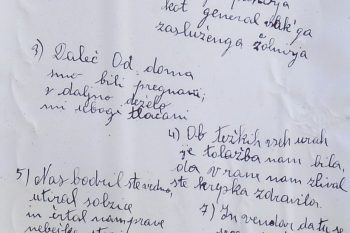 kot general vsak'ga
zasluženga žolnirja
3) Daleč Od doma
smo bili pregnani;
v daljno deželo
mi ubogi tlačani
4) Ob težkih vseh urah
je tolažba nam bila,
da v rane nam zlival
ste krepka zdravila.
5) Nas bodril ste vedno,
utiral solzice
in črtal nam prave
7) In vendar da tu se